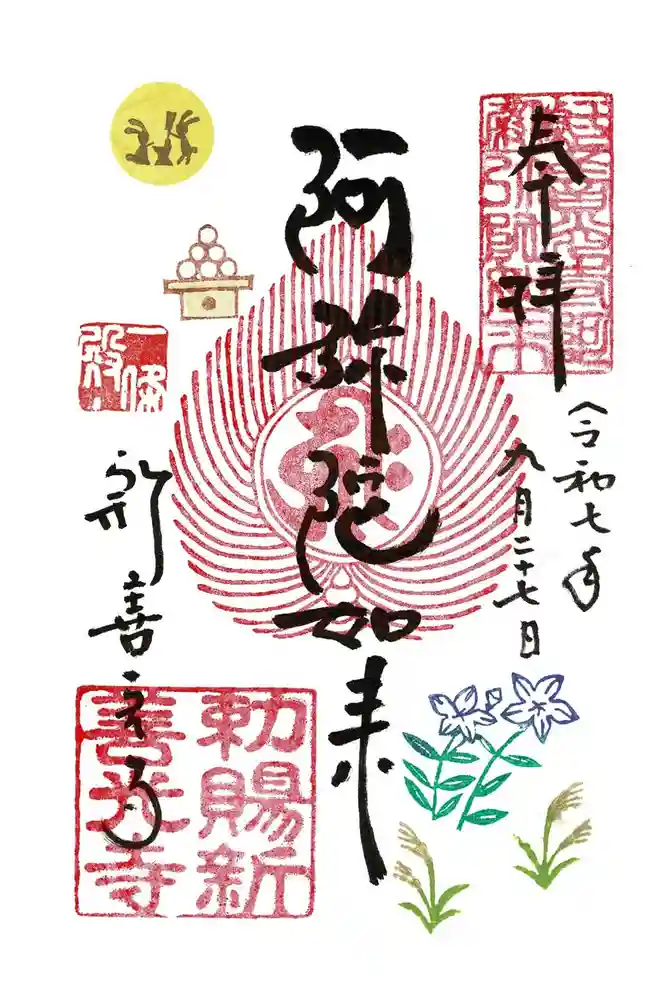 奉拝
令和七年
九月二十七日
阿弥陀如来
一條殿
新善光寺
勅賜新
善光寺